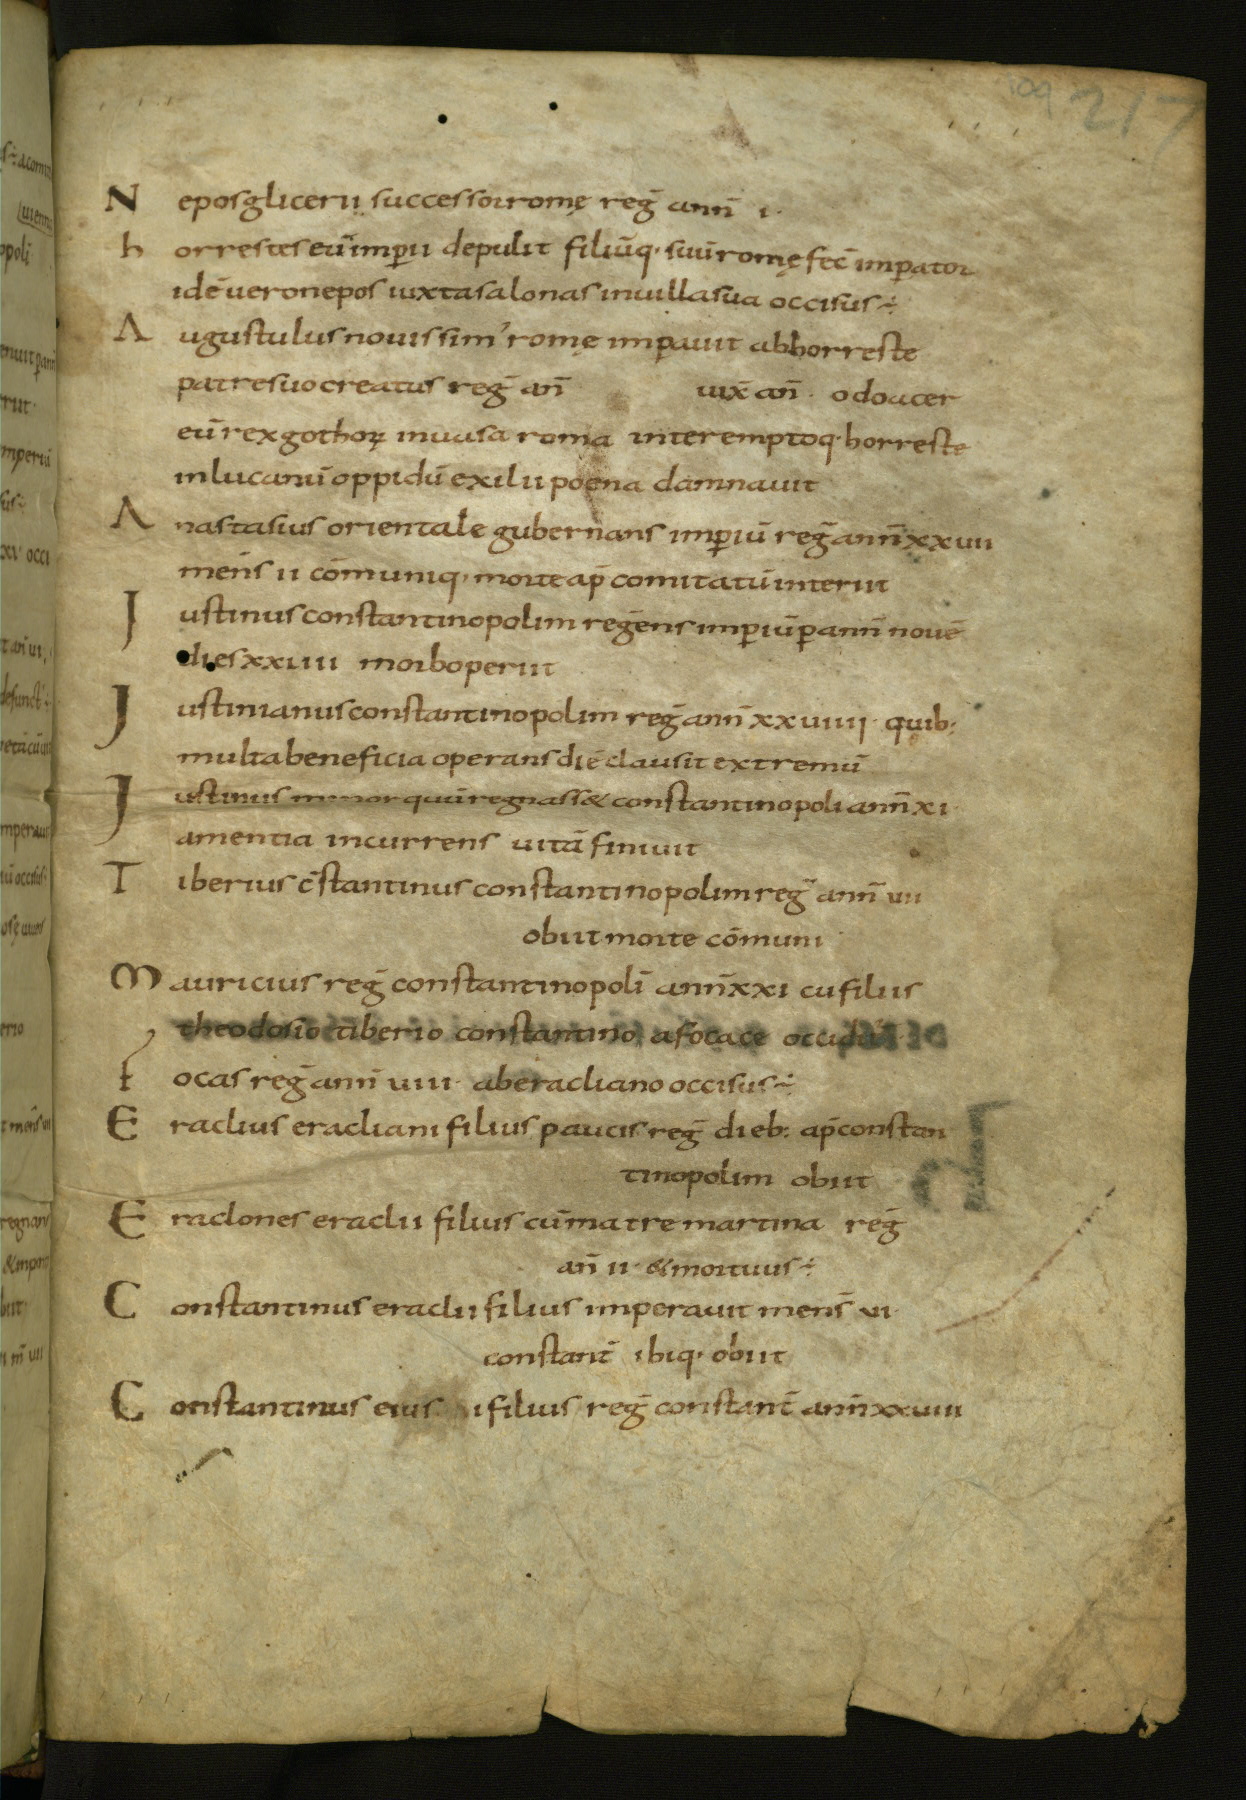 109 217
Neposglicerii successorromę reg̅ ann̅ i·
horrestes eu̅ imp̅ii depulit filiu̅q· suu̅romę fec̅ imp̅ator
ide̅ ueronepos iuxtasalonas inuillasua occisus÷
Augustulus nouissim' romę imp̅auit abhorreste
patresuocreatus reg̅ an̅ uix̅ an̅· odoacer
eu̅ rexgothoꝝ inuasa roma interemptoq· horreste
inlucaniu̅ oppidu̅ exilii poena damnauit
Anastasius orientale gubernans imp̅iu̅ reg̅ ann̅ xxuii
mens̅ ii co̅muniq· morte ap̅ comitatu̅ interiit
Iustinus constantinopolim rege̅ns imp̅iu̅ p̅ ann̅ noue̅
dies xxiiii morboperiit
Iustinianus constantinopolim reg̅ ann̅ xxuiiii· quib:
multabeneficia operans die̅ clausit extremu̅
Iustinus minor quu̅ regnass& constantinopoli ann̅ xi·
amentia incurrens uita̅ finiuit
Tiberius c̅stantinus constantinopolim reg̅ ann̅ uii
obiit morte co̅muni
Mauricius reg̅ constantinopoli̅ ann̅ xxi cu filiis
theodosio tiberio constantino afocace occidit̅
focas reg̅ ann̅ uiii· aberacliano occisus÷
Eraclius eracliani filius paucis reg̅ dieb: ap̅ constan
tinopolim obiit
Eraclones eraclii filius cu̅ matre martina reg̅
an̅ ii· &mortuus÷
Constantinus eraclii filius imperauit mens̅ ui·
constant̅ ibiq· obiit
Constantinus eius filius reg̅ constant̅ ann̅ xxuiii